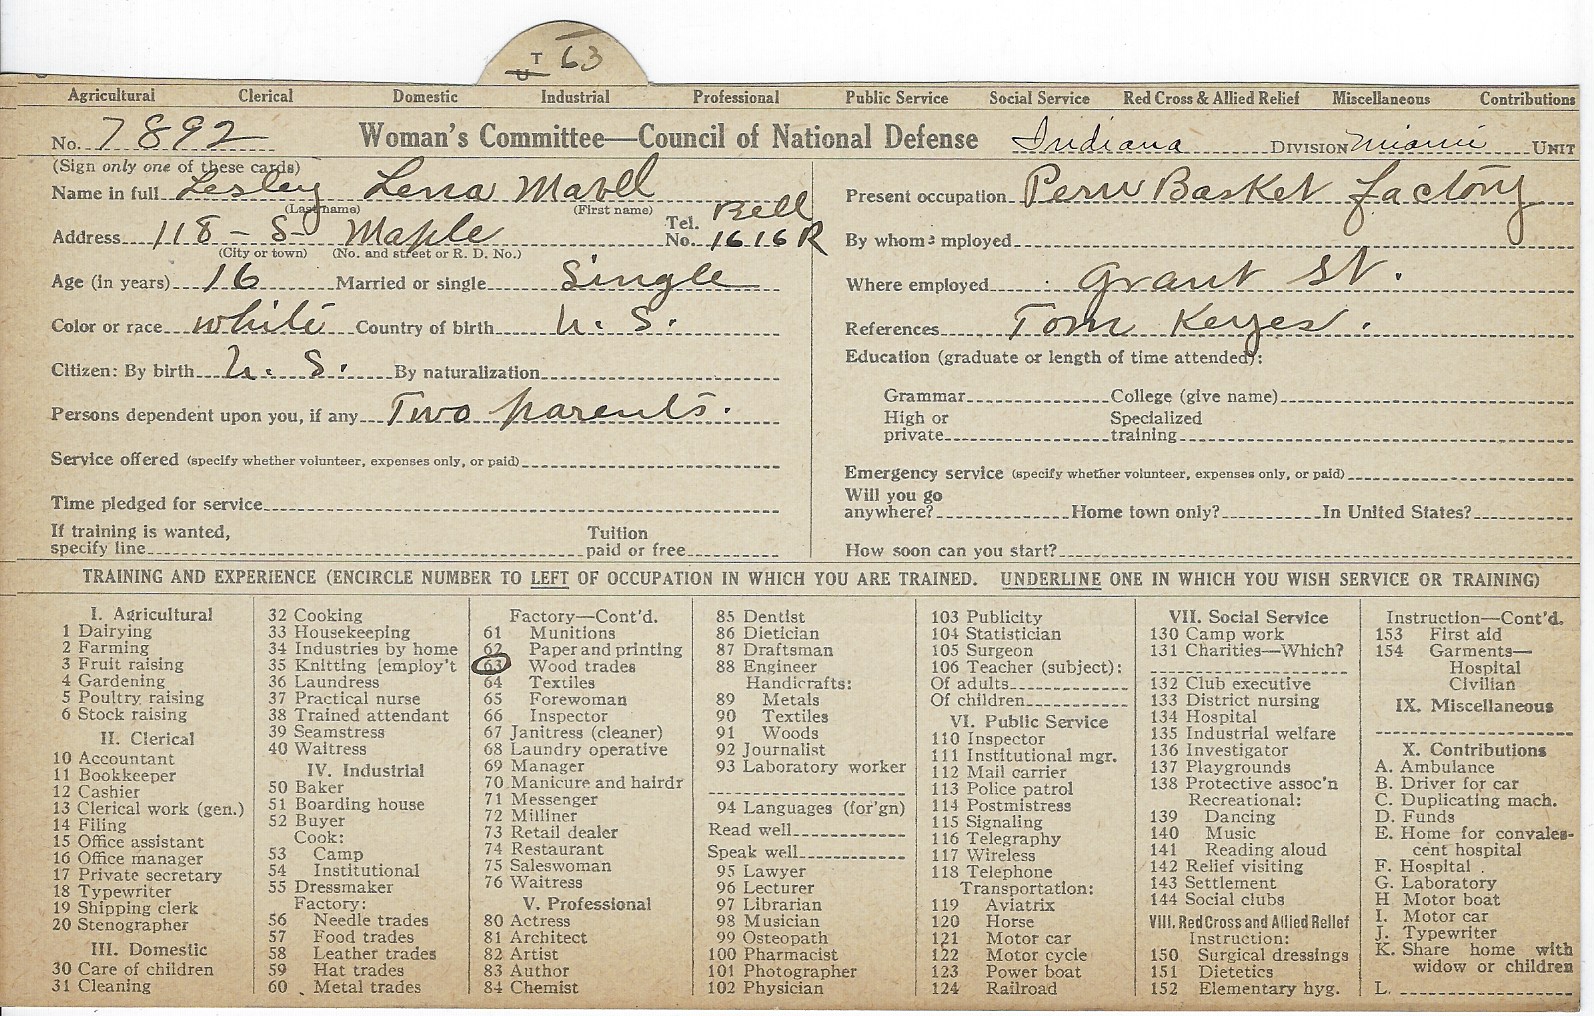 T 63
U
Agricultural Clerical Domestic Industrial Professional Public Service Social Service Red Cross & Allied Relief Miscellaneous Contributions
No. 7892 Woman's Committee—Council of National Defense Indiana DIVISION Miami UNIT
(Sign only one of these cards)
Name in full Lesley Lena Mabel
(Last name) (First name)
Address 118 - S- Maple Tel. No. Bell 1616R
(City or town) (No. and street or R. D. No.)
Age (in years) 16 Married or single Single
Color or race white Country of birth U. S.
Citizen: By birth U. S. By naturalization
Persons dependent upon you, if any Two parents.
Service offered (specify whether volunteer, expenses only, or paid)
Time pledged for service
If training is wanted, specify line Tuition paid or free
Present occupation Peru Basket factory
By whom employed
Where employed Grant St.
References Tom Keyes.
Education (graduate or length of time attended):
Grammar College (give name)
High or private Specialized training
Emergency service (specify whether volunteer, expenses only, or paid)
Will you go anywhere? Home town only? In United States?
How soon can you start?
TRAINING AND EXPERIENCE (ENCIRCLE NUMBER TO LEFT OF OCCUPATION IN WHICH YOU ARE TRAINED. UNDERLINE ONE IN WHICH YOU WISH SERVICE OR TRAINING)
I. Agricultural
1 Dairying
2 Farming
3 Fruit raising
4 Gardening
5 Poultry raising
6 Stock raising
II. Clerical
10 Accountant
11 Bookkeeper
12 Cashier
13 Clerical work (gen.)
14 Filing
15 Office assistant
16 Office manager
17 Private secretary
18 Typewriter
19 Shipping clerk
20 Stenographer
III. Domestic
30 Care of children
31 Cleaning
32 Cooking
33 Housekeeping
34 Industries by home
35 Knitting [employ't
36 Laundress
37 Practical nurse
38 Trained attendant
39 Seamstress
40 Waitress
IV. Industrial
50 Baker
51 Boarding house
52 Buyer
Cook:
53 Camp
54 Institutional
55 Dressmaker
Factory:
56 Needle trades
57 Food trades
58 Leather trades
59 Hat trades
60 Metal trades
Factory—Cont'd.
61 Munitions
62 Paper and printing
63 Wood trades
64 Textiles
65 Forewoman
66 Inspector
67 Janitress (cleaner)
68 Laundry operative
69 Manager
70 Manicure and hairdr
71 Messenger
72 Milliner
73 Retail dealer
74 Restaurant
75 Saleswoman
76 Waitress
V. Professional
80 Actress
81 Architect
82 Artist
83 Author
84 Chemist
85 Dentist
86 Dietician
87 Draftsman
88 Engineer
Handicrafts:
89 Metals
90 Textiles
91 Woods
92 Journalist
93 Laboratory worker
94 Languages (for'gn)
Read well
Speak well
95 Lawyer
96 Lecturer
97 Librarian
98 Musician
99 Osteopath
100 Pharmacist
101 Photographer
102 Physician
103 Publicity
104 Statistician
105 Surgeon
106 Teacher (subject):
Of adults
Of children
VI. Public Service
110 Inspector
111 Institutional mgr.
112 Mail carrier
113 Police patrol
114 Postmistress
115 Signaling
116 Telegraphy
117 Wireless
118 Telephone
Transportation:
119 Aviatrix
120 Horse
121 Motor car
122 Motor cycle
123 Power boat
124 Railroad
VII. Social Service
130 Camp work
131 Charities—Which?
132 Club executive
133 District nursing
134 Hospital
135 Industrial welfare
136 Investigator
137 Playgrounds
138 Protective assoc'n
Recreational:
139 Dancing
140 Music
141 Reading aloud
142 Relief visiting
143 Settlement
144 Social clubs
VIII. Red Cross and Allied Relief
Instruction:
150 Surgical dressings
151 Dietetics
152 Elementary hyg.
Instruction—Cont'd.
153 First aid
154 Garments—
Hospital
Civilian
IX. Miscellaneous
X. Contributions
A. Ambulance
B. Driver for car
C. Duplicating mach.
D. Funds
E. Home for convales-
cent hospital
F. Hospital
G. Laboratory
H Motor boat
I. Motor car
J. Typewriter
K. Share home with
widow or children
L.